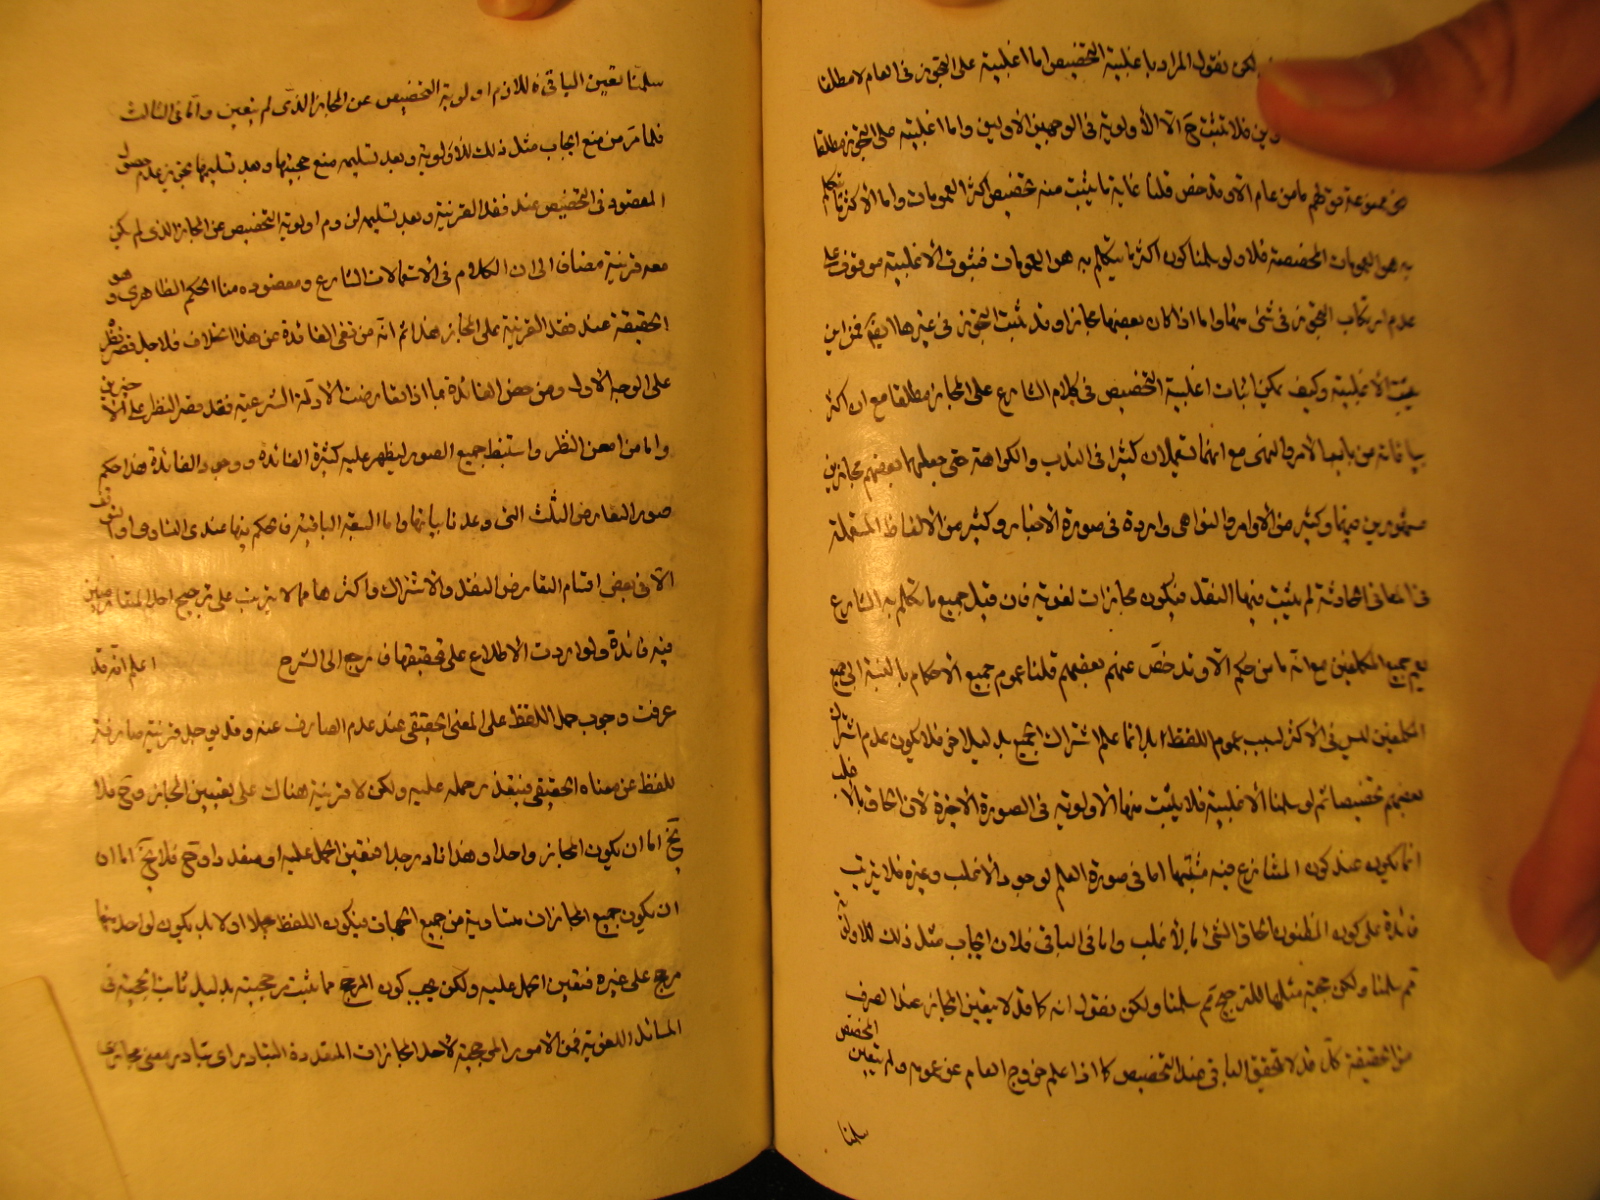 لكن نقول المراد باغلبية التخصيص اما اغلبية على التجوز فى العام لا مطلقا
فلا تثبت ح الا الأولوية فى الوجهين الاولين واما اغلبيته على التجوز مطلقا
فهى ممنوعة قولهم ما من عام الا وقد خص قلنا غاية ما يثبت منه تخصيص اكثر العمومات واما ان اكثر ما يتكلم
به هو العمومات المخصصة فلا ولو سلمنا كون اكثر ما يتكلم به هو العمومات فثبوت الأغلبية موقوف على
عدم ارتكاب التجوز فى شئ منها واما اذا كان بعضها مجازا وقد ثبت التجوز فى غيرها ايضا فمن اين
يثبت الأغلبية وكيف يمكن اثبات اغلبية التخصيص فى كلام الشارع على المجاز مطلقا مع ان اكثر
بياناته من باب الأمر والنهى مع انهما تستعملان كثيرا فى الندب والكراهة حتى جعلهما بعضهم مجازين
مشهورين فيهما وكثير من الأوامر والنواهى واردة فى صورة الاخبار وكثير من الألفاظ المستعملة
فى المعانى الحادثة لم يثبت فيها النقل فيكون مجازات لغوية فان قيل جميع ما تكلم به الشارع
يعم جميع المكلفين مع انه ما من حكم الا وقد خص عنهم بعضهم قلنا عموم جميع الأحكام بالنسبة الى جميع
المكلفين ليس فى الأكثر بسبب عموم اللفظ بل انما علم اشتراك الجميع بدليل اخر فلا يكون عدم اشتراك
بعضهم تخصيصا ثم لو سلمنا الأغلبية فلا يثبت منها الأولوية فى الصورة الأخيرة لأن الحاق بالأغلب
انما يكون عند كون المتنازع فيه مشتبها اما فى صورة العلم بوجود الأغلب وغيره فلا يترتب
فائدة على كون المظنون الحاق الشئ بالأغلب واما فى الباقى فلان ايجاب مثل ذلك للاولوية
ثم سلمنا ولكن حجية مثلها للترجيح ثم سلمنا ولكن نقول انه كما قد لا يتعين المجاز عند الصرف
من الحقيقة كك قد لا تحقق الباقى عند التخصيص كما اذا علم خروج العام عن عمومه ولم يتعين المخصص
سلمنا
سلمنا تعين الباقى فاللازم اولوية التخصيص عن المجاز الذى لم يتعين واما فى الثالث
فلما مر من منع ايجاب مثل ذلك للاولوية وبعد تسليمه منع حجيتها وبعد تسليمها تجويز عدم حصول
المقصود فى التخصيص عند فقد القرينة وبعد تسليمه لزوم اولوية التخصيص عن المجاز الذى لم يكن
معه قرينة مضاف الى ان الكلام فى الاستعمالات الشارع ومقصوده منا الحكم الظاهرى وهو
الحقيقة عند فقد القرينة على المجاز هذا ثم انه من نفى الفائدة عن هذا الخلاف فلاجل قصر نظره
على الوجه الاول ومن خص الفائدة بما اذا تعارضت الأدلة الشرعية فقد قصر النظر على الاخيرين
واما من امعن النظر واستنبط جميع الصور ليظهر عليه كثرة الفائدة ووجود الفائدة هذا حكم
صور التعارض الثلث التى وعدنا بيانها واما السبعة الباقية فالحكم فيها عندى التساوى او التوقف
الا فى بعض اقسام التعارض النقل والاشتراك واكثرها مما لا يترتب على ترجيح احد المتعارضين
فيه فائدة ولو اردت الاطلاع على تحقيقها فارجع الى الشرح اعلم انه قد
عرفت وجوب حمل اللفظ على المعنى الحقيقى عند عدم الصارف عنه وقد يوجد قرينة صارفة
للفظ عن معناه الحقيقى فيتعذر حمله عليه ولكن لا قرينة هناك على تعيين المجاز وح فلا
يخ اما ان يكون المجاز واحدا وهذا نادر جدا فتعين الحمل عليه او متعددا وح فلا يخ اما ان
ان يكون جميع المجازات متساوية من جميع الجهات فيكون اللفظ مجملا او لا بل يكون لواحد منها
مرجح على غيره فتعين الحمل عليه ولكن يجب كون المرجح مما يثبت مرجحيته بدليل ثابت الحجية فى
المسائل اللغوية فمن الامور المرجحة لاحد المجازات المتعددة التبادر اى تبادر معنى مجازى